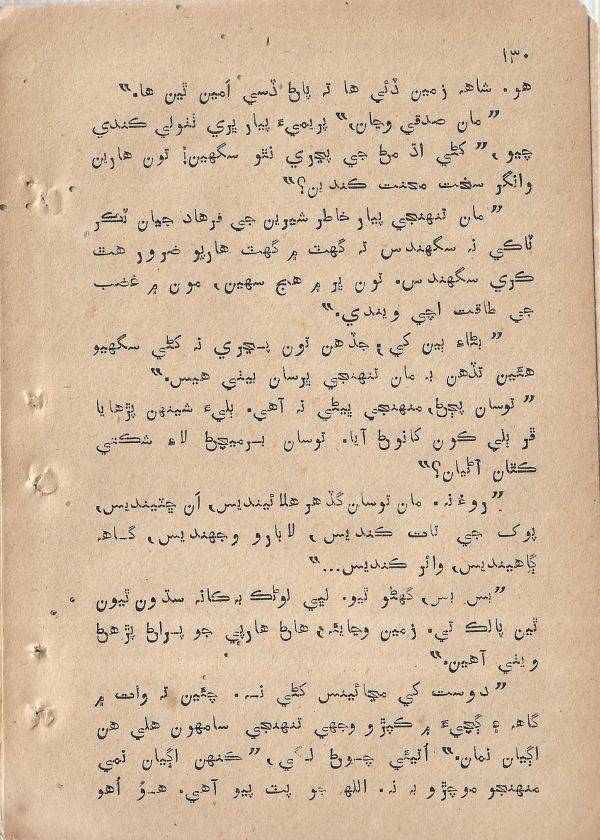 ۱۳۰
هو. شاهہ زمين ڏئي ها تہ پاڻ ڏسي اَمين ٿين ها.”
”مان صدقي وڃان،” پريميءَ پيار ڀري ٺٺولي ڪندي
چيو، ”کڻي اڌ مڻ جي ڀري نٿو سگهين! تون هارين
وانگر سخت محنت ڪندين؟”
”مان تنهنجي پيار خاطر شيرين جي فرهاد جيان ٽڪر
ٽاڪي نہ سگهندس تہ گهٽ ۾ گهٽ هارپو ضرور هٿ
ڪري سگهندس. تون ڀر ۾ هج سهين، مون ۾ غضب
جي طاقت اچي ويندي.”
”ٻڌاءِ ٻين کي؛ جڏهن تون ڀري نہ کڻي سگهيو
هئين تڏهن بہ مان تنهنجي ڀرسان بيٺي هيس.”
”توسان پڄڻ منهنجي ڀيڻي نہ آهي. ٻليءَ شينهن پڙهايا
ڦر ٻلي کون کائوڻ آيا. توسان برميچڻ لاءِ شڪتي
ڪٿان آڻيان؟”
”روءُ نہ. مان توسان گڏ هر هلائينديس، اَن ڇٽينديس،
پوک جي تات ڪنديس، لابارو وجهنديس، گاهہ
ڳاهينديس، وائر ڪنديس...”
”بس بس، گهڻو ٿيو. لڇي لوڻڪ بہ کانہ سڌون ٿيون
ٿين پالڪ تي. زمين وڃايئہ، هاڻ هارپي جو پراڻ پڙهڻ
ويٺي آهين.”
”دوست کي مڃائينس کڻي نہ. چئين تہ وات ۾
گاهہ ۽ ڳچيءَ ۾ ڪپڙو وجهي تنهنجي سامهون هلي هن
اڳيان نمان.” اُٿيئي چوڻ لڳي، ”ڪنهن اڳيان نمي
منهنجو موچڙو بہ نہ. اللهہ جو پٽ پيو آهي. هوُ اُهو